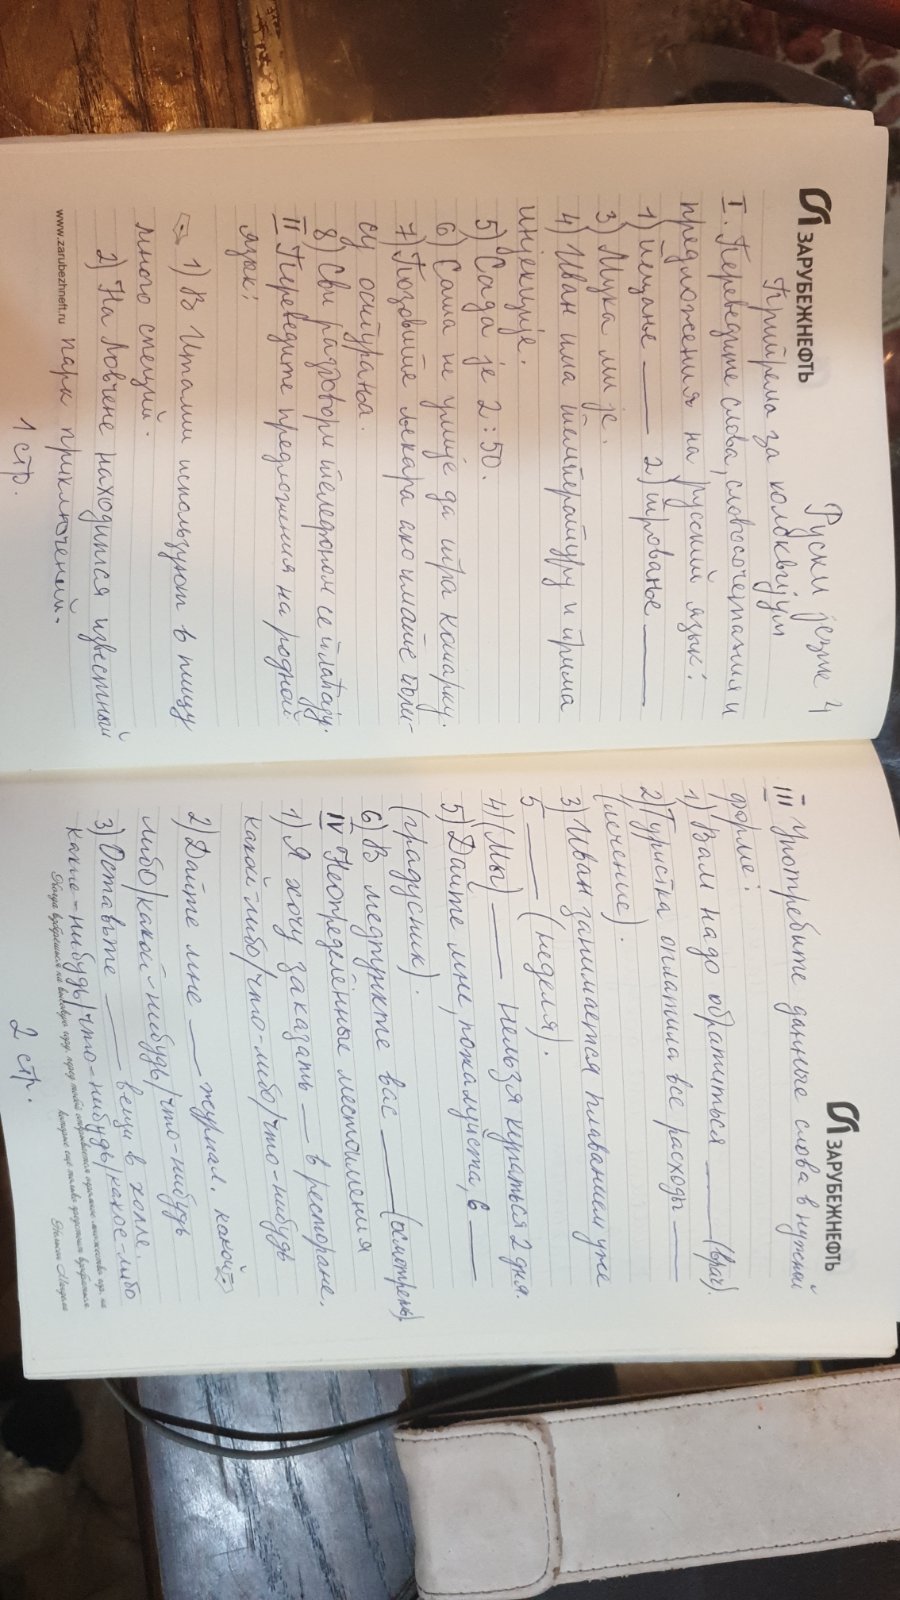 ЗАРУБЕЖНЕФТЬ
Руски језик 4
Припрема за колоквијум
I. Переведите слова, словосочетания и
предложения на русский язык:
1) пецање ___ 2) тровање ___
3) Мука ми је.
4) Иван има температуру и прима
инјекције.
5) Сада је 2:50.
6) Саша не умије да игра кошарку.
7) Позовите љекара ако имате поли-
су осигурања.
8) Сви разговори телефоном се плаћају.
II Переведите предложения на родной
язык:
1) В Италии используют в пищу
много специй.
2) На Ловчене находится известный
парк приключений.
www.zarubezhneft.ru
1 стр.
ЗАРУБЕЖНЕФТЬ
III Употребите данные слова в нужной
форме:
1) Вам надо обратиться ___ (врач).
2) Туристка оплатила все расходы ___
(лечение).
3) Иван занимается плаванием уже
5 ___ (неделя).
4) (Мы) ___ нельзя купаться 2 дня.
5) Дайте мне, пожалуйста, 6 ___
(градусник).
6) В медпункте вас ___ (осмотреть)
IV Неопределённые местоимения
1) Я хочу заказать ___ в ресторане.
какой-либо/что-либо/что-нибудь
2) Дайте мне ___ журнал. какой
либо/какой-нибудь/что-нибудь
3) Оставьте ___ вещи в холле.
какие-нибудь/что-нибудь/какое-либо
Нельсон Мандела
2 стр.